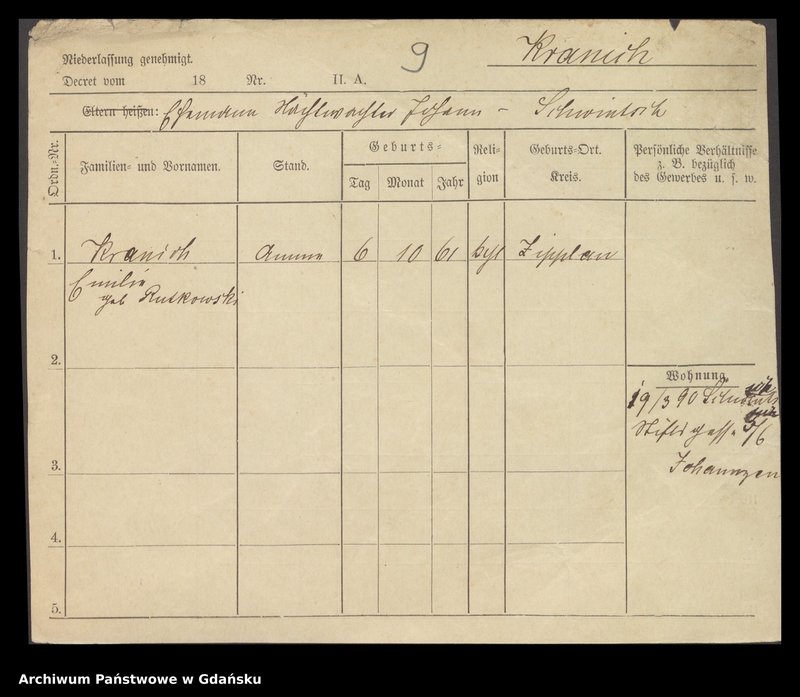 9
Kranich
Niederlassung genehmigt.
Decret vom 18 Nr. II. A.
Eltern heißen: Ehemann Nachtwächter Johann -
Ordn.-Nr.
Familien- und Vornamen.
Stand.
Geburts-
Tag
Monat
Jahr
Reli-
gion
Geburts-Ort.
Kreis.
Persönliche Verhältnisse
z. B. bezüglich
des Gewerbes u. s. w.
1.
Kranich
Amme
6
10
61
Zipplau
Emilie
geb Rutkowski
2.
Wohnung
19/3 90
5/6
Johannsen
3.
4.
5.
Archiwum Państwowe w Gdańsku